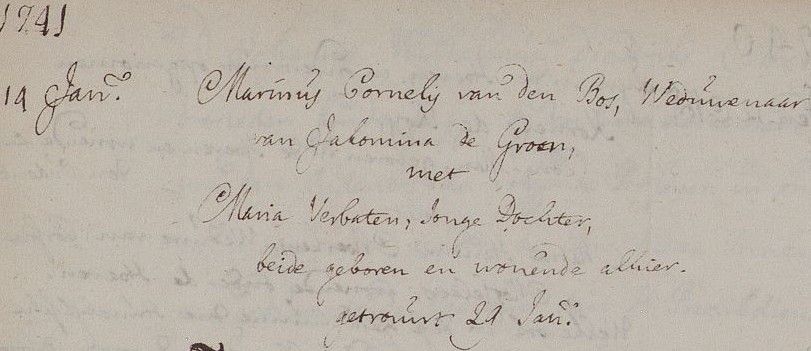 1741
14 Janr. Marinus Cornelis van den Bos, Weduwenaar
van Jakomina de Groen,
met
Maria Verbaten, Jonge Dochter,
beide geboren en wonende alhier.
getrouwt 29 Janr.